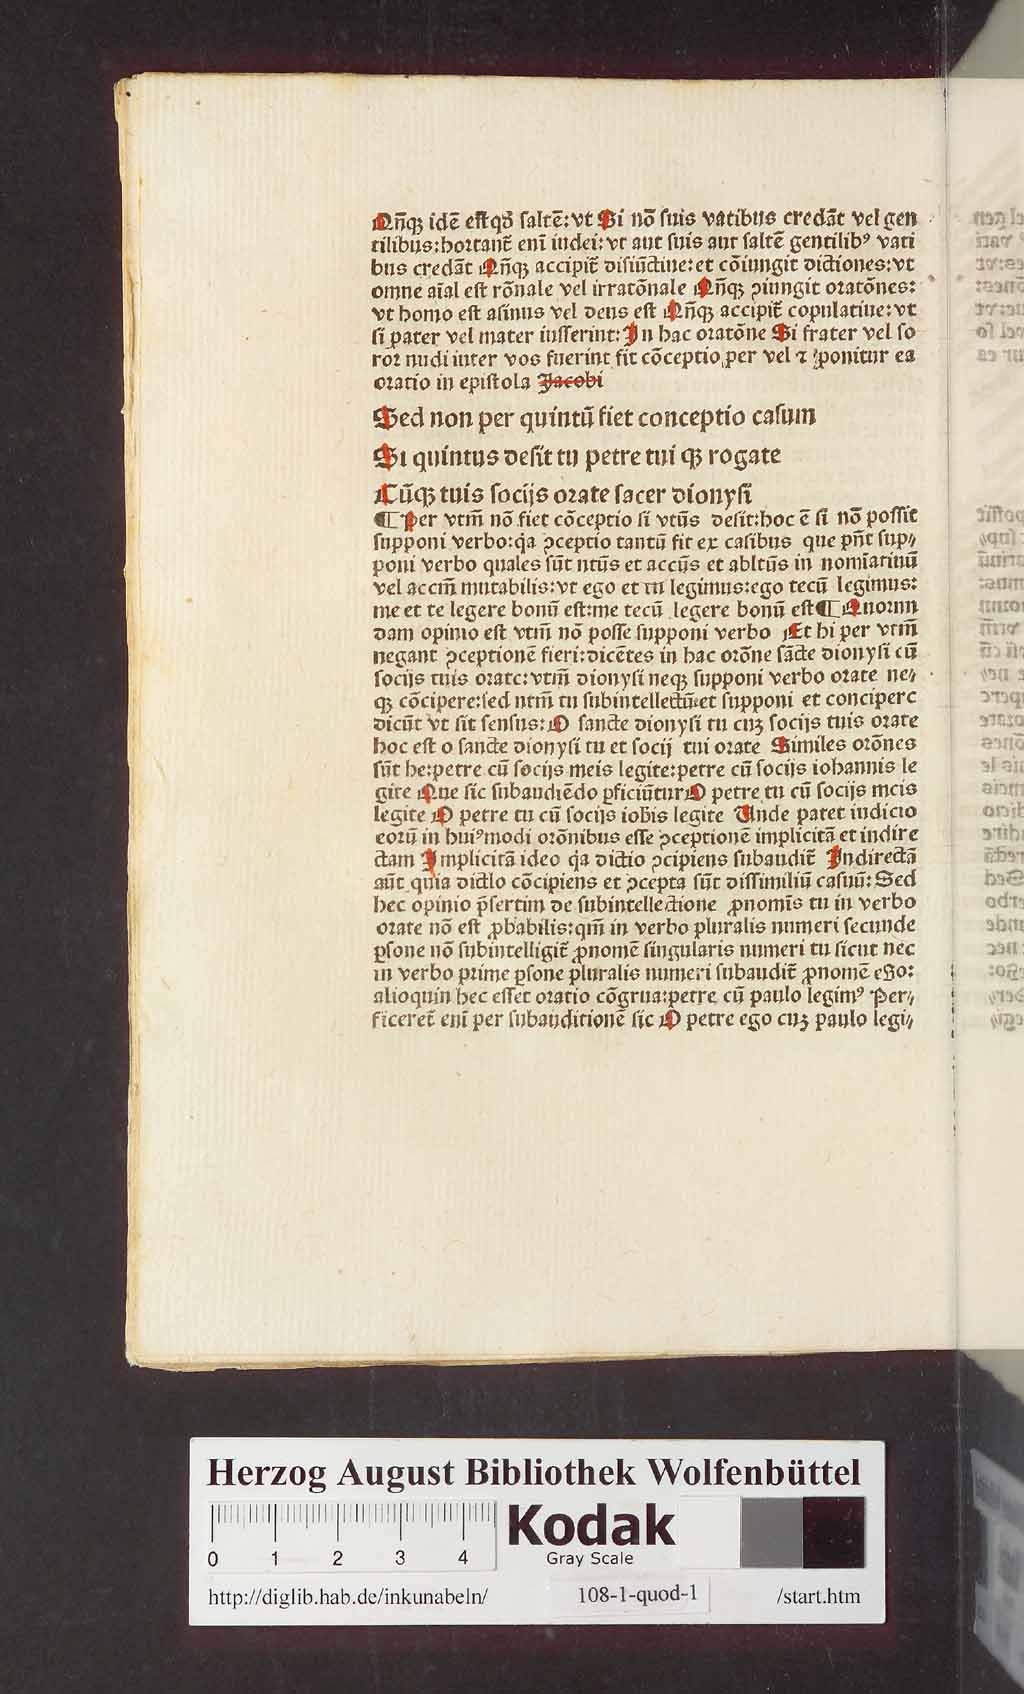 Qn̄qꝫ idē est qđ saltē: vt Si nō suis vatibus credāt vel gen
tilibus: hortant̄ enī iudei: vt aut suis aut saltē gentilibꝰ vati
bus credāt Qn̄qꝫ accipit̄ disiūctiue: et cōiungit dictiones: vt
omne aīal est rōnale vel irratōnale Qn̄qꝫ ꝯiungit oratōnes:
vt homo est asinus vel deus est Qn̄qꝫ accipit̄ copulatiue: vt
si pater vel mater iusserint: In hac oratōne Si frater vel so
ror nudi inter vos fuerint fit cōceptio per vel ⁊ ponitur ea
oratio in epistola Jacobi
Sed non per quintū fiet conceptio casum
Si quintus desit tu petre tui qꝫ rogate
Cūqꝫ tuis socijs orate sacer dionysi
¶ Per vtm̄ nō fiet cōceptio si vtūs desit: hoc ē si nō possit
supponi verbo: q̄a ꝯceptio tantū fit ex casibus que pn̄t sup⸗
poni verbo quales sūt ntūs et accūs et abltūs in nomīatiuū
vel accm̄ mutabilis: vt ego et tu legimus: ego tecū legimus:
me et te legere bonū est: me tecū legere bonū est ¶ Quorun
dam opinio est vtm̄ nō posse supponi verbo Et hi per vtm̄
negant ꝯceptionē fieri: dicētes in hac orōne sācte dionysi cū
socijs tuis orate: vtm̄ dionysi neqꝫ supponi verbo orate ne⸗
qꝫ cōcipere: sed ntm̄ tu subintellectū: et supponi et concipere
dicūt vt sit sensus: O sancte dionysi tu cuꝫ socijs tuis orate
hoc est o sancte dionysi tu et socij tui orate Similes orōnes
sūt he: petre cū socijs meis legite: petre cū socijs iohannis le
gite Que sic subaudiēdo ꝑficiūtur O petre tu cū socijs meis
legite O petre tu cū socijs iohis legite Unde patet iudicio
eorū in huiꝰmodi orōnibus esse ꝯceptionē implicitā et indire
ctam Implicitā ideo q̄a dictio ꝯcipiens subaudit̄ Indirectā
aūt quia dictio cōcipiens et ꝯcepta sūt dissimiliū casuū: Sed
hec opinio p̄sertim de subintellectione ꝓnomīs tu in verbo
orate nō est ꝓbabilis: qm̄ in verbo pluralis numeri secunde
ꝑsone nō subintelligit̄ ꝓnomē singularis numeri tu sicut nec
in verbo prime ꝑsone pluralis numeri subaudit̄ ꝓnomē ego:
alioquin hec esset oratio cōgrua: petre cū paulo legimꝰ Per⸗
ficeret̄ enī per subauditionē sic O petre ego cuꝫ paulo legi⸗
Herzog August Bibliothek Wolfenbüttel
0 1 2 3 4
Kodak
Gray Scale
http://diglib.hab.de/inkunabeln/ 108-1-quod-1 /start.htm